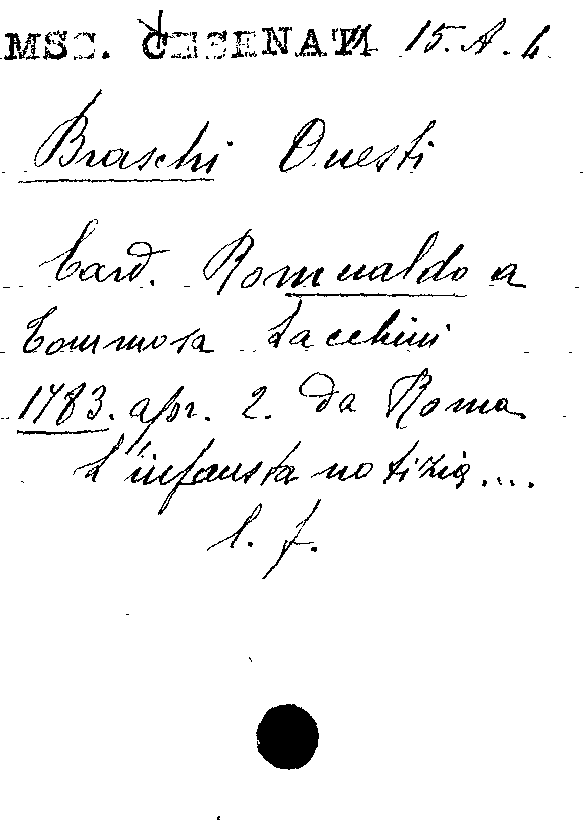 MSS. CESENATI 15. A. 6
Braschi Onesti
Card. Romualdo a
Tommosa Zacchini
1783. apr. 2. da Roma
L'infausta notizia....
l. f.